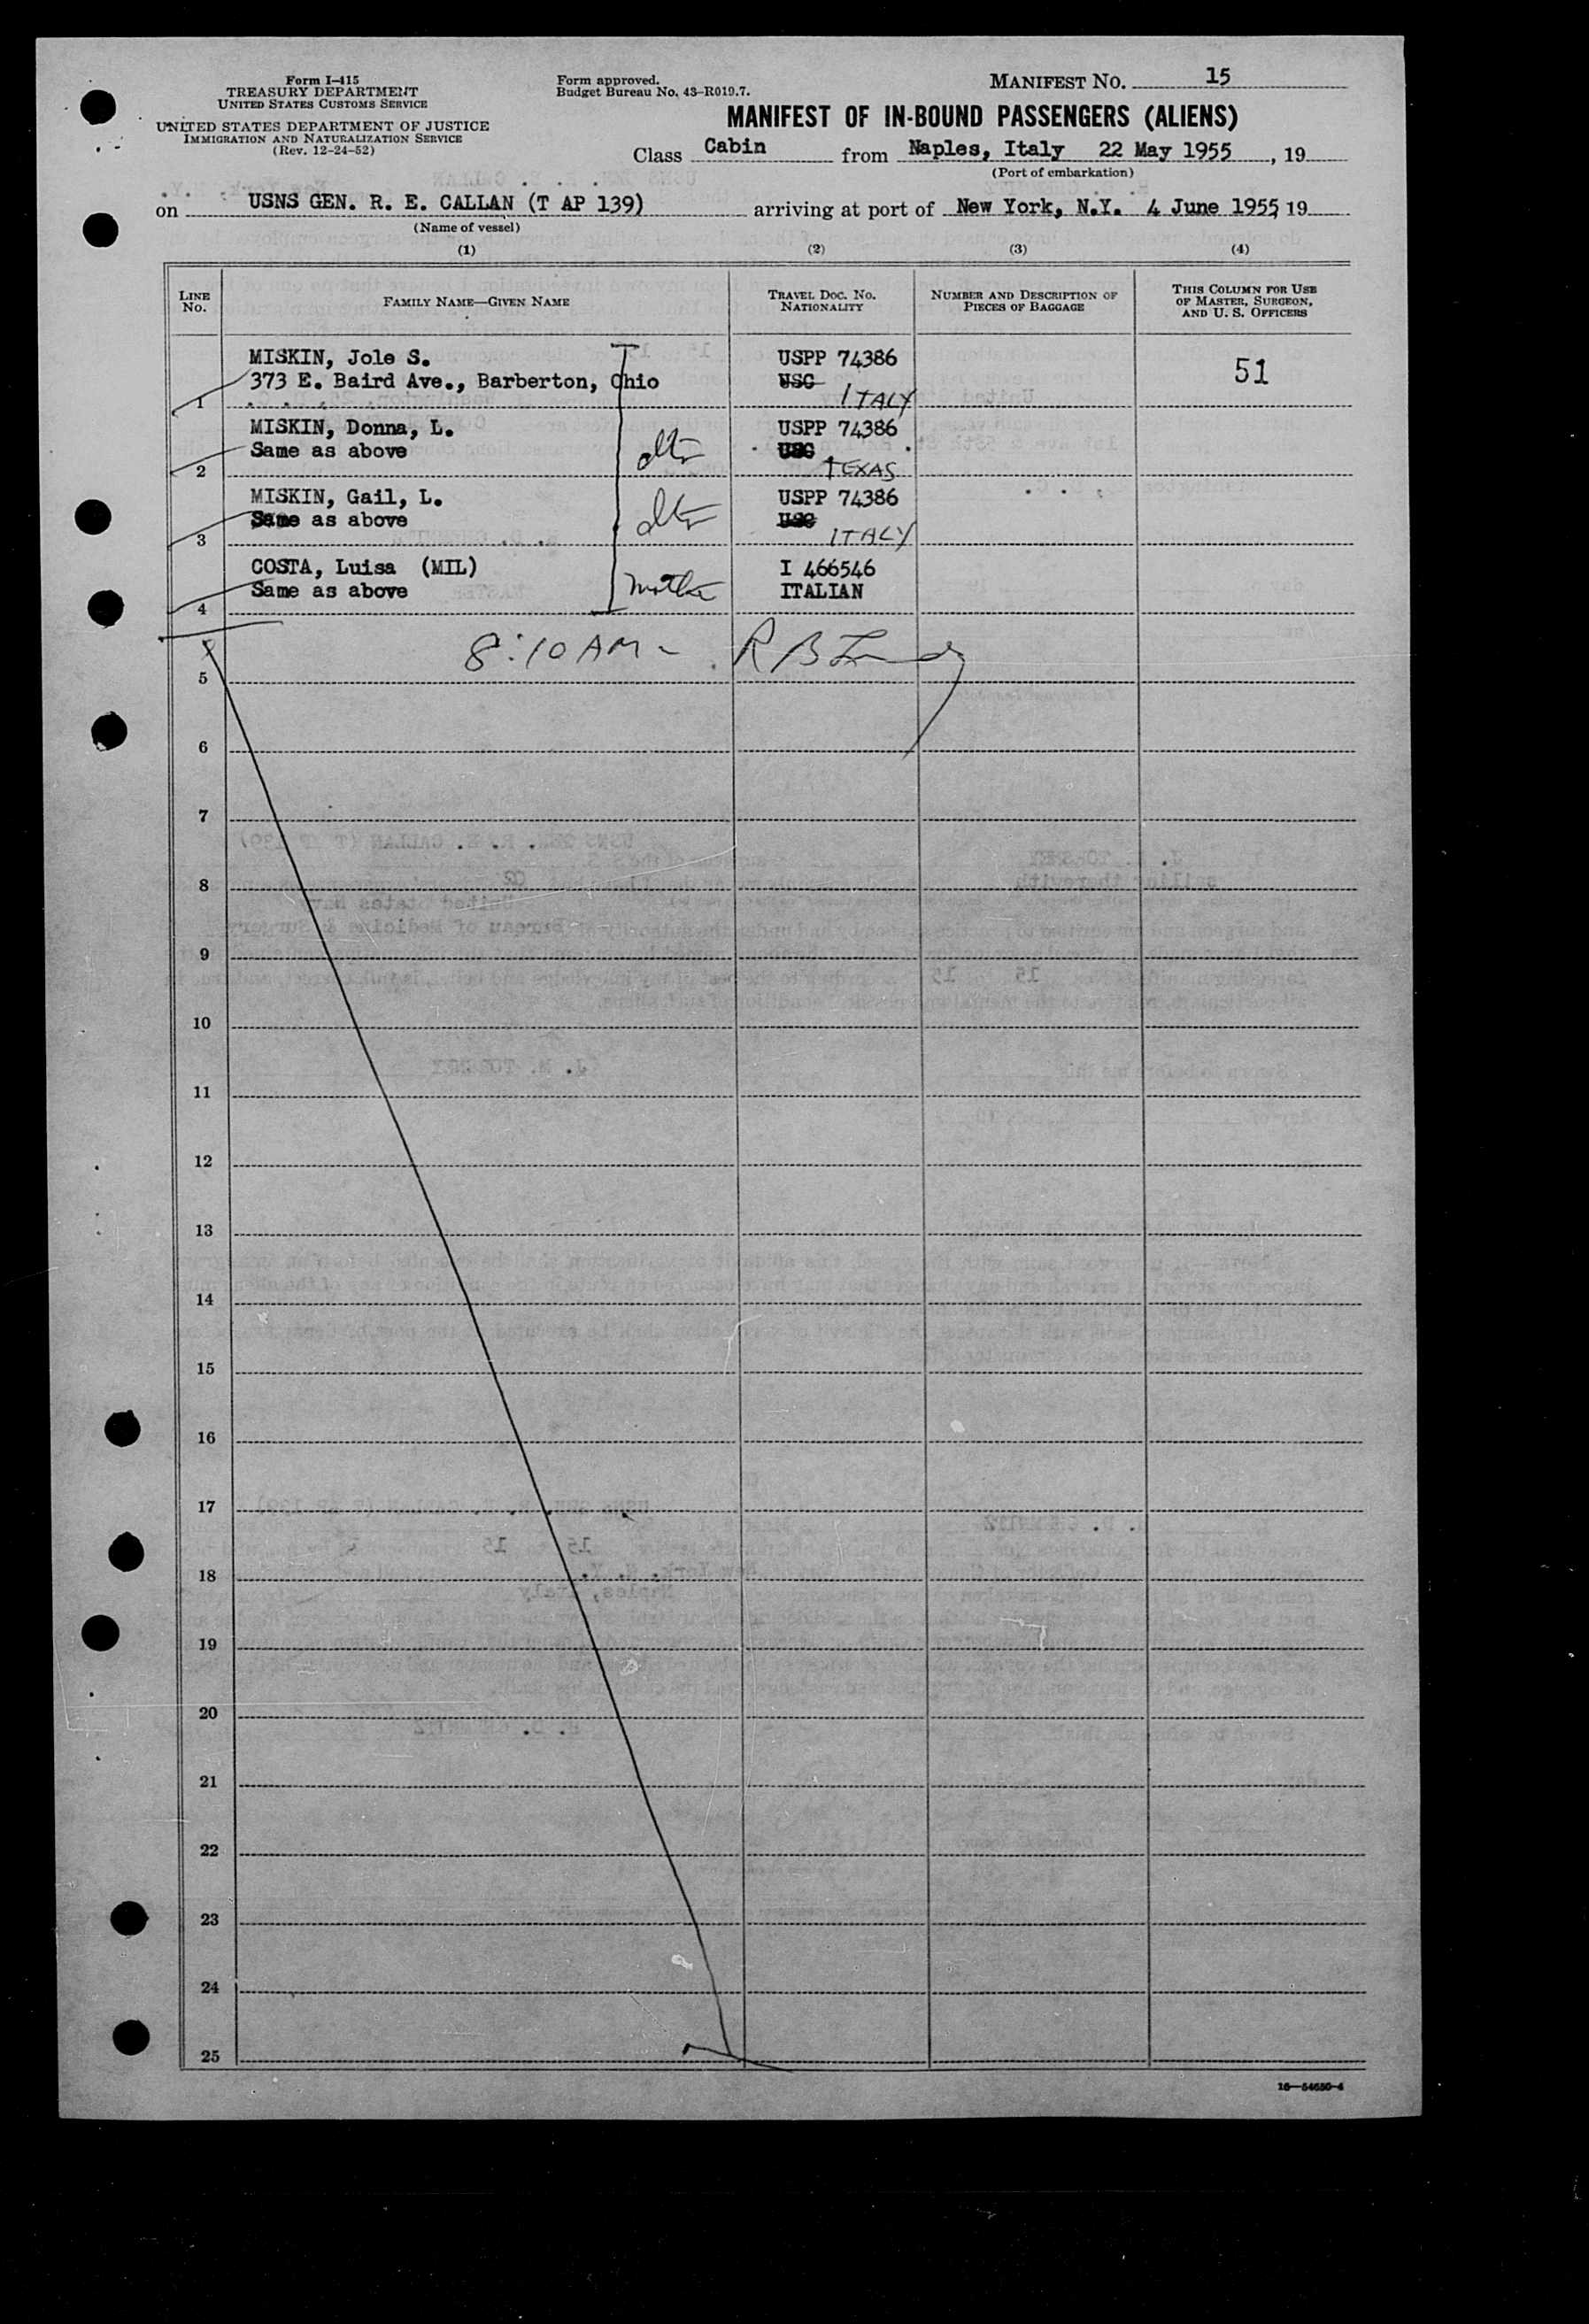 Form I-415
TREASURY DEPARTMENT
UNITED STATES CUSTOMS SERVICE
UNITED STATES DEPARTMENT OF JUSTICE
IMMIGRATION AND NATURALIZATION SERVICE
(Rev. 12-24-52)
Form approved.
Budget Bureau No. 43-R019.7.
MANIFEST NO. 15
MANIFEST OF IN-BOUND PASSENGERS (ALIENS)
Class Cabin from Naples, Italy 22 May 1955, 19
(Port of embarkation)
on USNS GEN. R. E. CALLAN (T AP 139) arriving at port of New York, N.Y. 4 June 1955, 19
(Name of vessel)
(1) (2) (3) (4)
LINE No. FAMILY NAME—GIVEN NAME TRAVEL DOC. NO. NATIONALITY NUMBER AND DESCRIPTION OF PIECES OF BAGGAGE THIS COLUMN FOR USE OF MASTER, SURGEON, AND U. S. OFFICERS
MISKIN, Jole S. USPP 74386 51
373 E. Baird Ave., Barberton, Ohio USC
1 ITALY
MISKIN, Donna, L. USPP 74386
Same as above USC
2 TEXAS
MISKIN, Gail, L. USPP 74386
Same as above USC
3 ITALY
COSTA, Luisa (MIL) I 466546
Same as above mother ITALIAN
4
8:10 AM - R B
5
6
7
8
9
10
11
12
13
14
15
16
17
18
19
20
21
22
23
24
25
16—54650-4